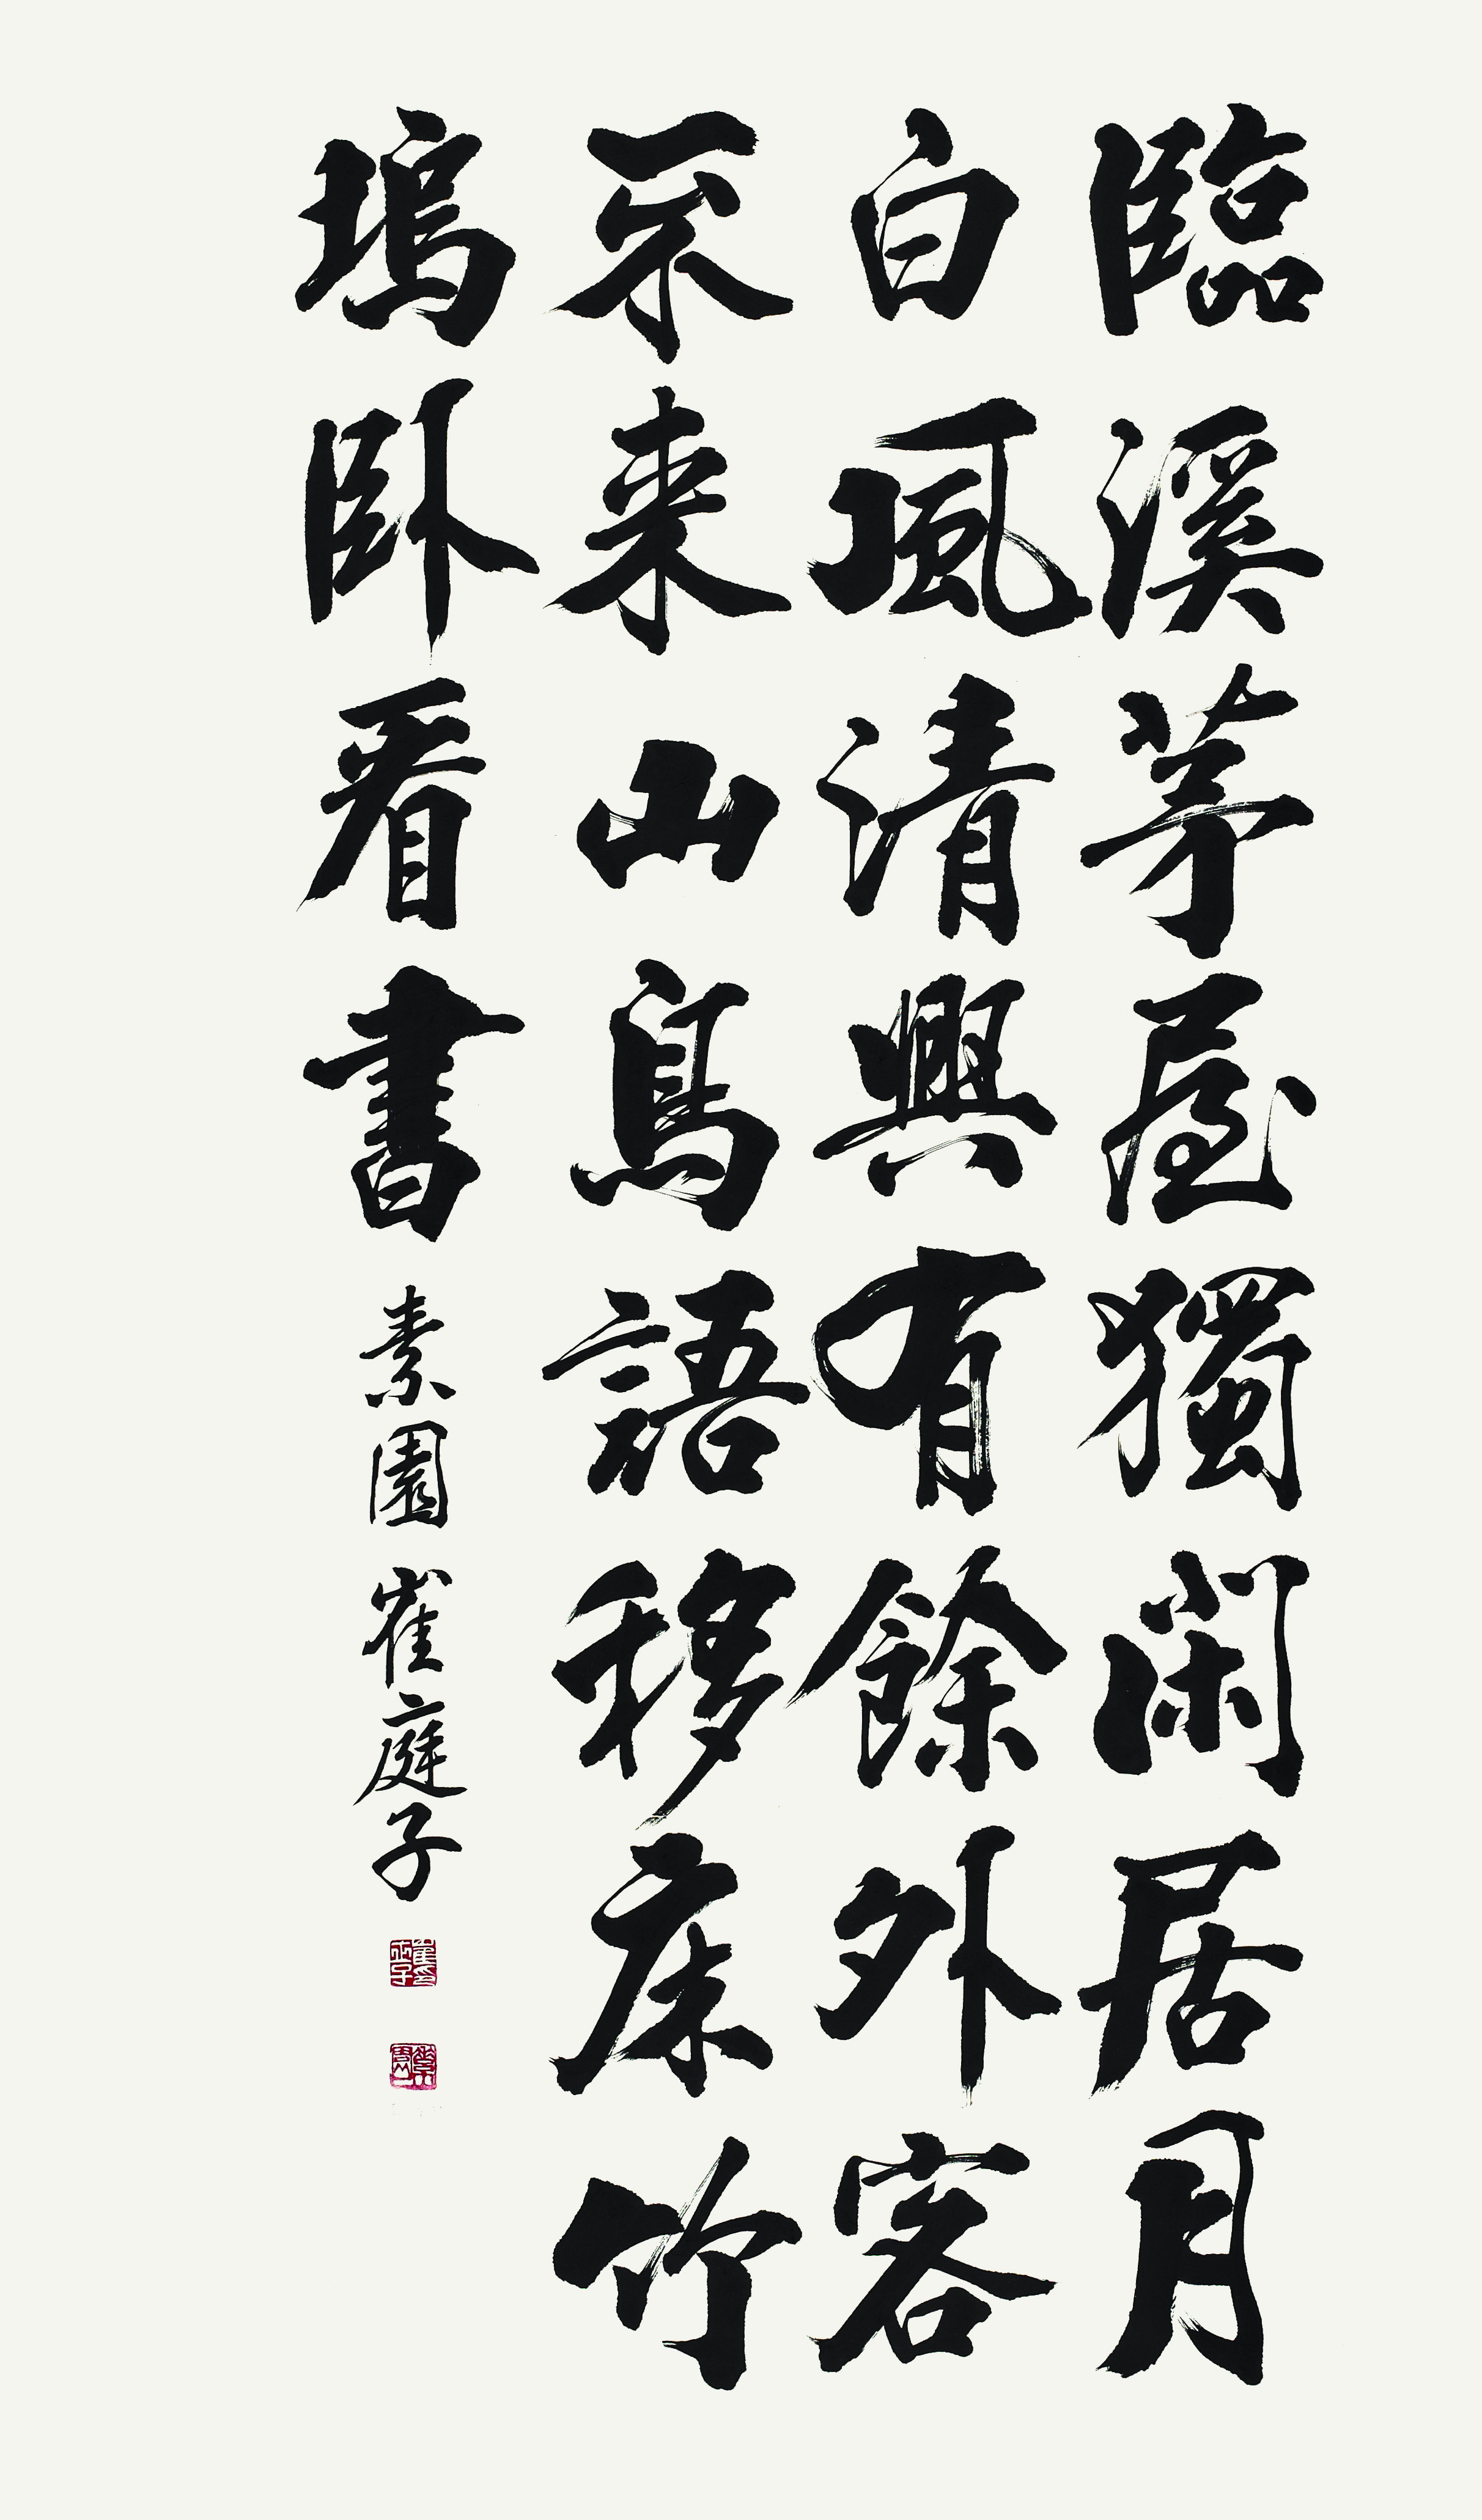 臨溪茅屋獨閑居月
白風清興有餘外客
不来山鳥語移床竹
塢卧看書 素園 崔庭子